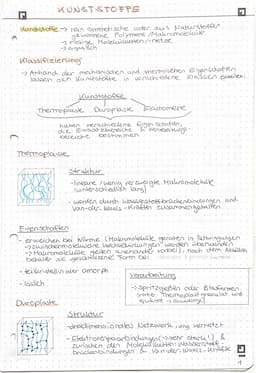 KUNSTSTOFFE
Kunststoffe → rein synthetische oder aus Naturstoffen
gewonnene Polymere/Makromoleküle
→ riesige Molekülketten/-netze
→ organisch
Klassifizierung
→ Anhand der mechanischen und thermischen Eigenschaften
lassen sich Kunststoffe in verschiedene Klassen einteilen.
Kunststoffe
Thermoplaste Duroplaste Elastomere
haben verschiedene Eigenschaften,
die Einsatzbereiche & Verwendungs-
bereiche bestimmen
Thermoplaste
Struktur
- lineare/wenig verzweigte Makromoleküle
(unterschiedlich lang)
- werden durch Wasserstoffbrückenbindungen und
Van-der-Waals-Kräfte zusammengehalten
Eigenschaften
- erweichen bei Wärme (Makromoleküle geraten in Schwingungen
→ zwischenmolekulare Wechselwirkungen werden überwunden
→ Makromoleküle gleiten aneinander vorbei), nach dem Abkühlen
behalten sie gewonnene Form bei
- teilkristallin oder amorph
- löslich
Verarbeitung
→ Spritzgießen oder Blasformen
Duroplaste
Struktur
- dreidimensionales Netzwerk, eng vernetzt
- Elektronenpaarbindungen (→ sehr stark!) &
zwischen den Molekülketten Wasserstoff-
brückenbindungen & Van-der-Waals-Kräfte
1